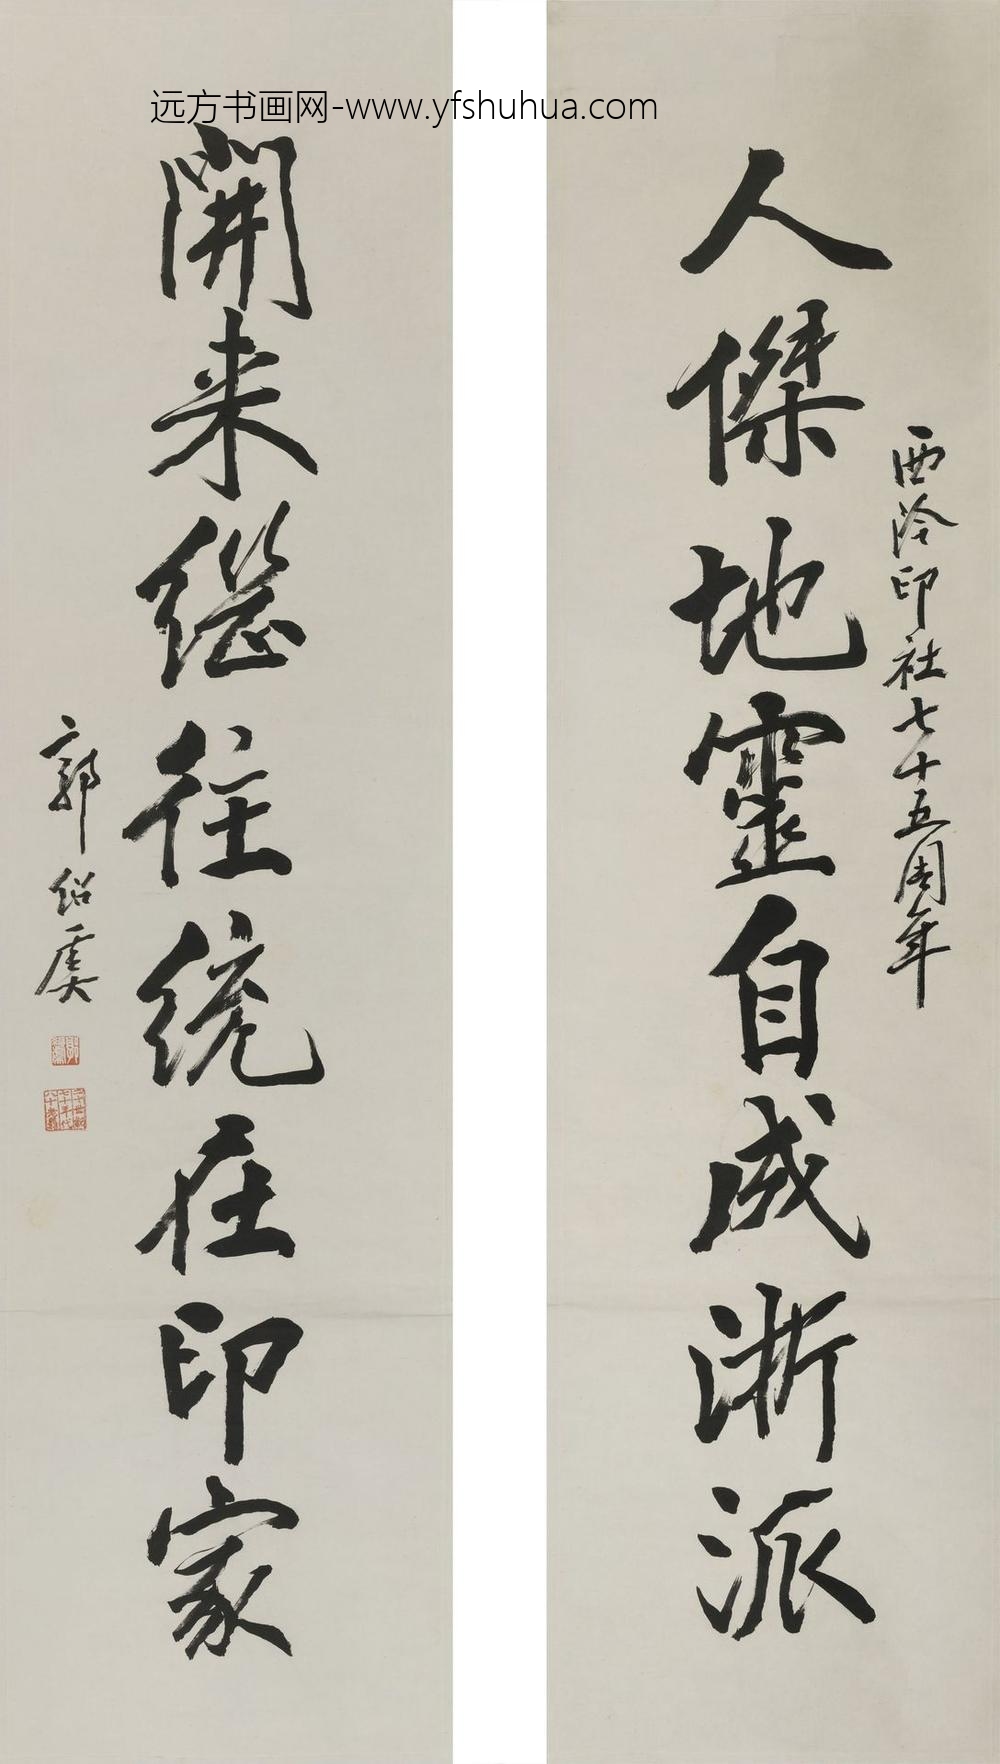 远方书画网-www.yfshuhua.com
西泠印社七十五周年
人傑地靈自成浙派
開来继往统在印家
郭绍虞